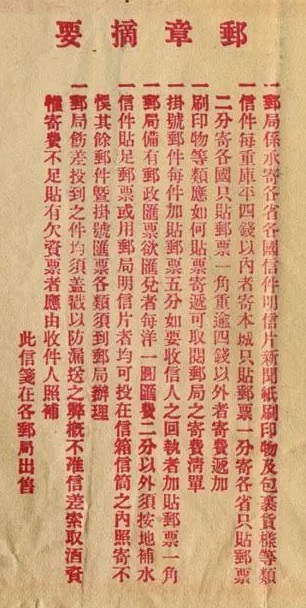 郵章摘要
一郵局係承寄各省各國信件明信片新聞紙刷印物及包裹貨樣等類
一信件每重庫平四錢以內者寄本城只貼郵票一分寄各省只貼郵票
二分寄各國只貼郵票一角重逾四錢以外者寄費遞加
一刷印物等類應如何貼票寄遞可取閱郵局之寄費清單
一掛號郵件每件加貼郵票五分如要收信人之回執者加貼郵票一角
一郵局備有郵政匯票欲匯兌者每洋一圓匯費二分以外須按地補水
一信件貼足郵票或用郵局明信片者均可投在信箱信筒之內照寄不
悞其餘郵件曁掛號匯票各類須到郵局辦理
一郵局飭差投到之件均須蓋戳以防漏送之弊概不准信差索取酒資
惟寄費不足貼有欠資票者應由收件人照補
此信箋在各郵局出售